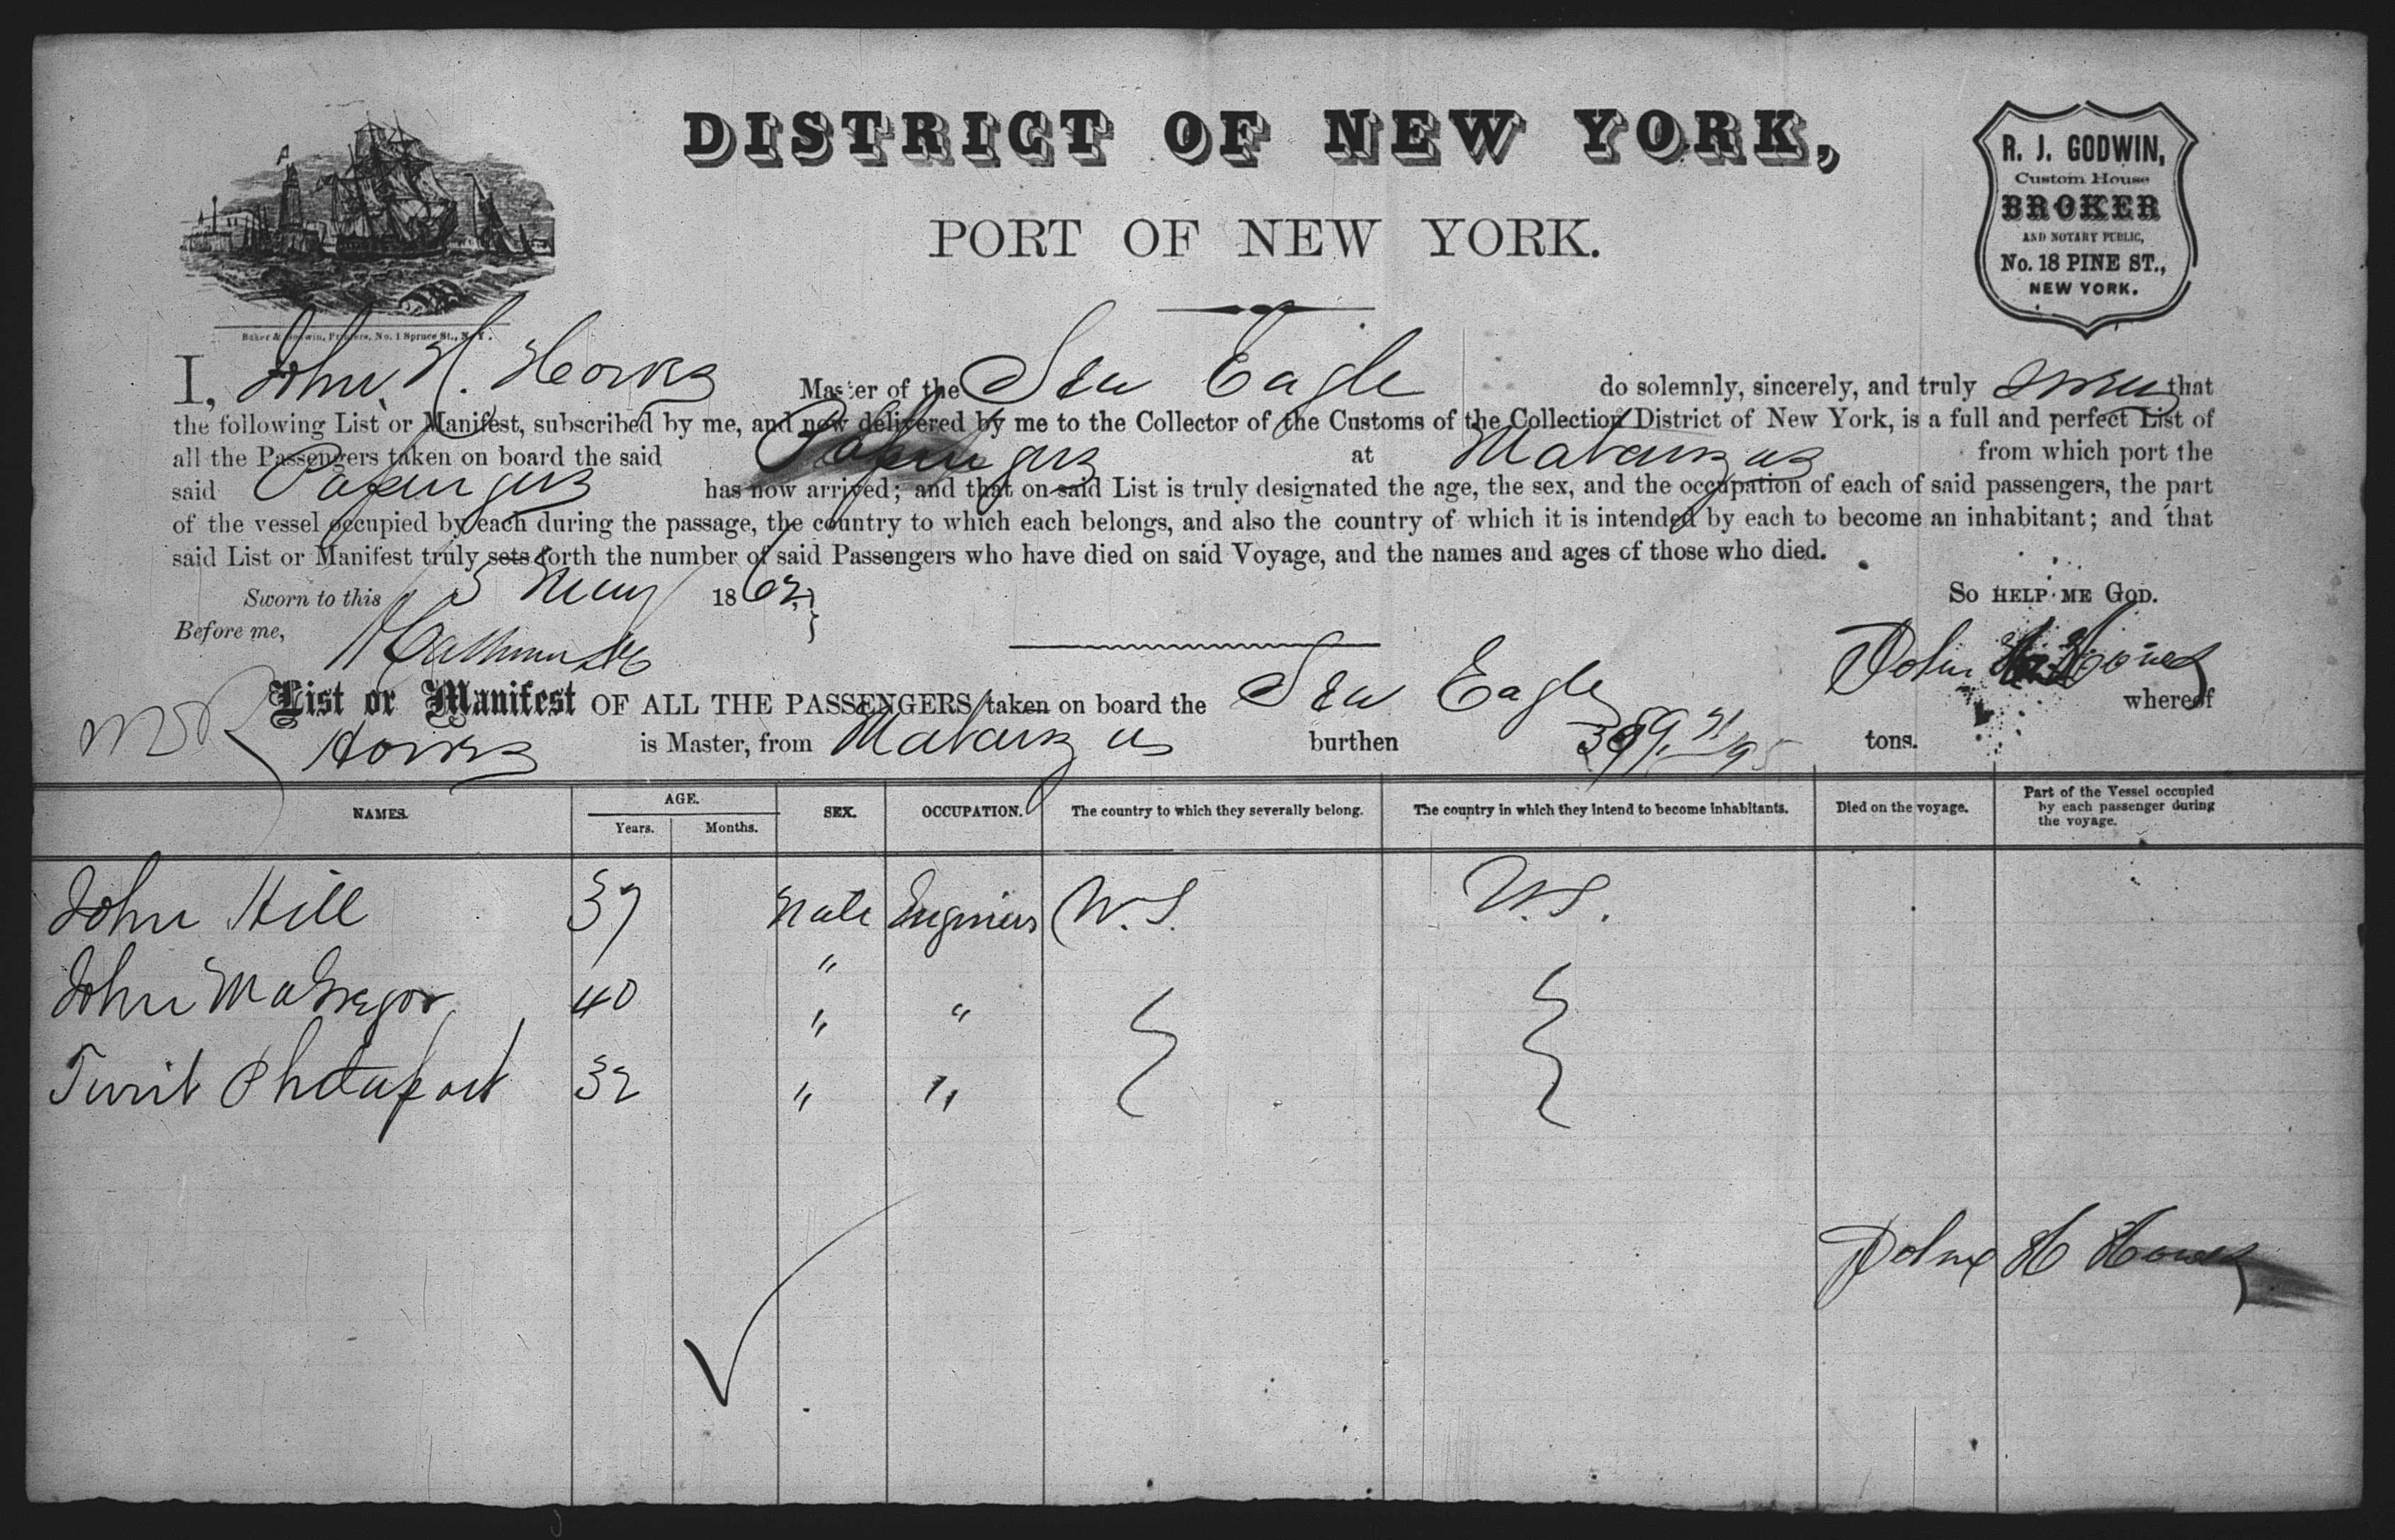 DISTRICT OF NEW YORK,
PORT OF NEW YORK.
R. J. GODWIN,
Custom House
BROKER
AND NOTARY PUBLIC,
No. 18 PINE ST.,
NEW YORK.
Baker & Godwin, Printers, No. 1 Spruce St., N. Y.
I, John H. Master of the Sea Eagle do solemnly, sincerely, and truly swear that
the following List or Manifest, subscribed by me, and now delivered by me to the Collector of the Customs of the Collection District of New York, is a full and perfect List of
all the Passengers taken on board the said Passengers at Matanzas from which port the
said Passengers has now arrived; and that on said List is truly designated the age, the sex, and the occupation of each of said passengers, the part
of the vessel occupied by each during the passage, the country to which each belongs, and also the country of which it is intended by each to become an inhabitant; and that
said List or Manifest truly sets forth the number of said Passengers who have died on said Voyage, and the names and ages of those who died.
Sworn to this 3 May 1862 }
So HELP ME GOD.
Before me,
John H
List or Manifest OF ALL THE PASSENGERS taken on board the Sea Eagle whereof
is Master, from Matanzas burthen tons.
NAMES. AGE. SEX. OCCUPATION. The country to which they severally belong. The country in which they intend to become inhabitants. Died on the voyage. Part of the Vessel occupied by each passenger during the voyage.
Years. Months.
John Hill 37 Male Engineer U.S. U.S.
John McGregor 40 " "
32 " "
John H